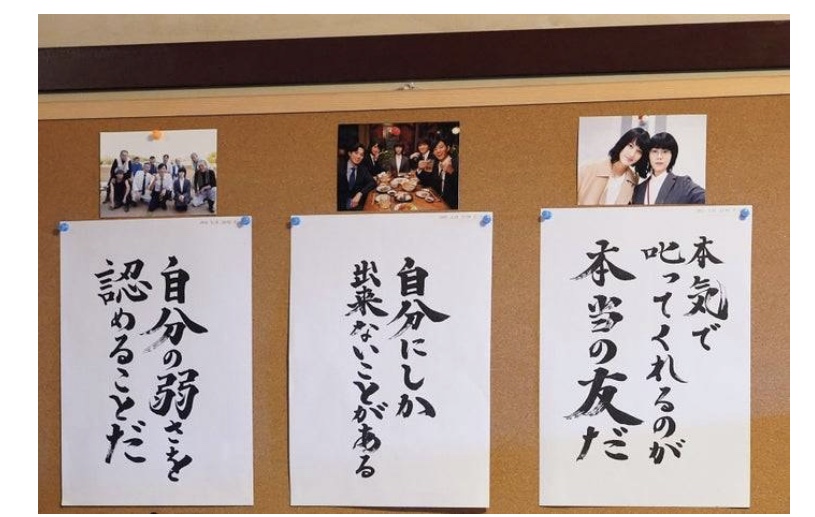 本気で
叱ってくれるのが
本当の友だ
自分にしか
出来ないことがある
自分の弱さを
認めることだ